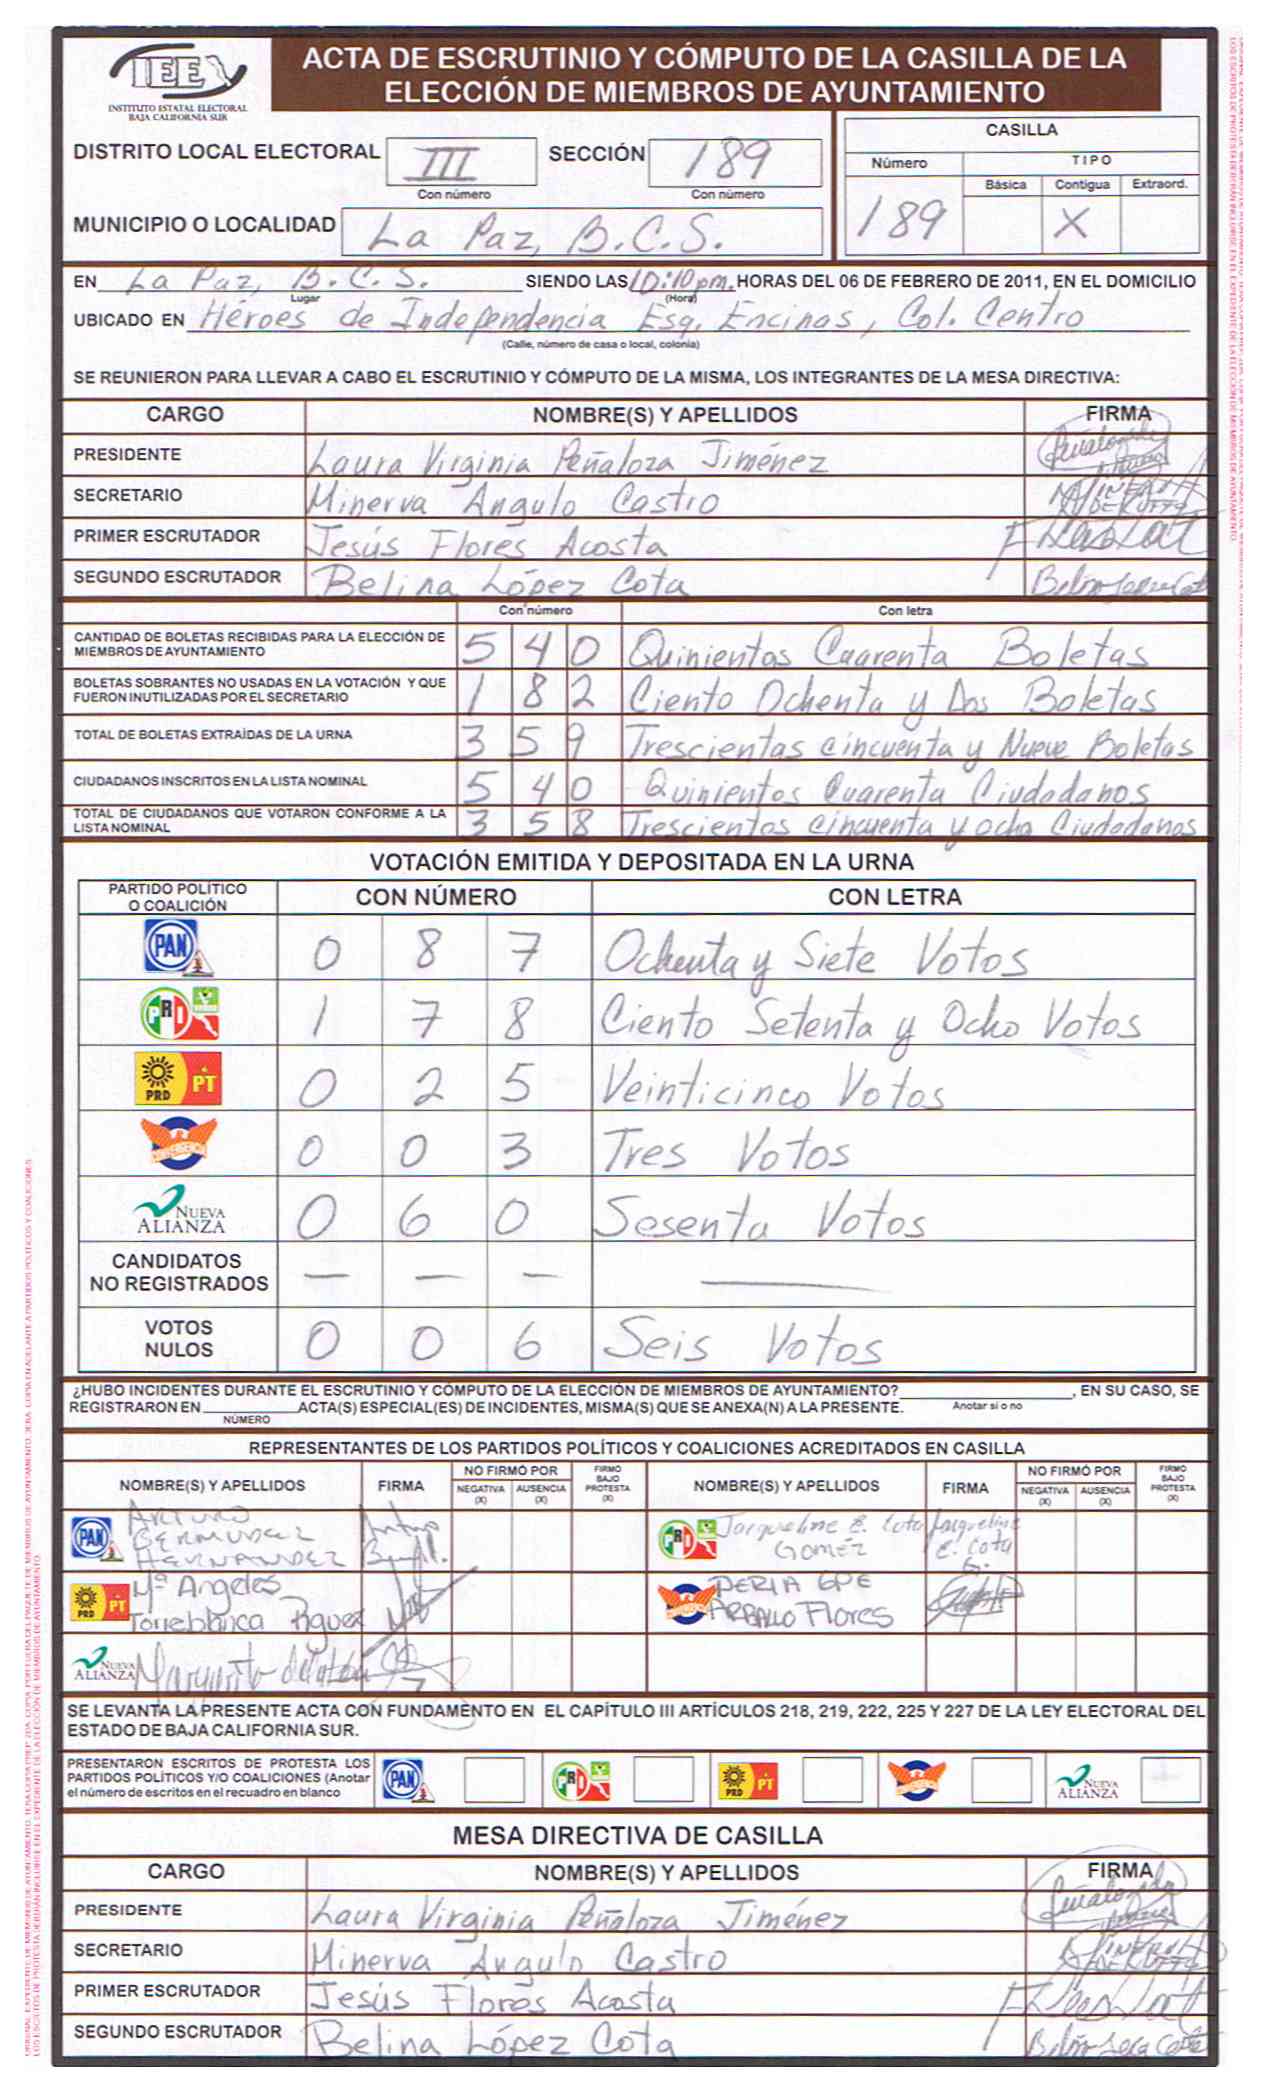 IEE
INSTITUTO ESTATAL ELECTORAL
BAJA CALIFORNIA SUR
ACTA DE ESCRUTINIO Y CÓMPUTO DE LA CASILLA DE LA
ELECCIÓN DE MIEMBROS DE AYUNTAMIENTO
DISTRITO LOCAL ELECTORAL III SECCIÓN 189
Con número Con número
MUNICIPIO O LOCALIDAD La Paz, B.C.S.
CASILLA
Número TIPO
Básica Contigua Extraord.
189 X
EN La Paz, B.C.S. SIENDO LAS 10:10 pm. HORAS DEL 06 DE FEBRERO DE 2011, EN EL DOMICILIO
Lugar (Hora)
UBICADO EN Héroes de Independencia Esq. Encinas, Col. Centro
(Calle, número de casa o local, colonia)
SE REUNIERON PARA LLEVAR A CABO EL ESCRUTINIO Y CÓMPUTO DE LA MISMA, LOS INTEGRANTES DE LA MESA DIRECTIVA:
CARGO NOMBRE(S) Y APELLIDOS FIRMA
PRESIDENTE Laura Virginia Peñaloza Jiménez
SECRETARIO Minerva Angulo Castro
PRIMER ESCRUTADOR Jesús Flores Acosta
SEGUNDO ESCRUTADOR Belina López Cota
Con número Con letra
CANTIDAD DE BOLETAS RECIBIDAS PARA LA ELECCIÓN DE
MIEMBROS DE AYUNTAMIENTO 5 4 0 Quinientos Cuarenta Boletas
BOLETAS SOBRANTES NO USADAS EN LA VOTACIÓN Y QUE
FUERON INUTILIZADAS POR EL SECRETARIO 1 8 2 Ciento Ochenta y Dos Boletas
TOTAL DE BOLETAS EXTRAÍDAS DE LA URNA 3 5 9 Trescientas cincuenta y Nueve Boletas
CIUDADANOS INSCRITOS EN LA LISTA NOMINAL 5 4 0 Quinientos Cuarenta Ciudadanos
TOTAL DE CIUDADANOS QUE VOTARON CONFORME A LA
LISTA NOMINAL 3 5 8 Trescientos cincuenta y ocho Ciudadanos
VOTACIÓN EMITIDA Y DEPOSITADA EN LA URNA
PARTIDO POLÍTICO
O COALICIÓN CON NÚMERO CON LETRA
PAN 0 8 7 Ochenta y Siete Votos
PRI 1 7 8 Ciento Setenta y Ocho Votos
PRD PT 0 2 5 Veinticinco Votos
CONVERGENCIA 0 0 3 Tres Votos
NUEVA ALIANZA 0 6 0 Sesenta Votos
CANDIDATOS
NO REGISTRADOS — — — —
VOTOS
NULOS 0 0 6 Seis Votos
¿HUBO INCIDENTES DURANTE EL ESCRUTINIO Y CÓMPUTO DE LA ELECCIÓN DE MIEMBROS DE AYUNTAMIENTO? , EN SU CASO, SE
REGISTRARON EN ACTA(S) ESPECIAL(ES) DE INCIDENTES, MISMA(S) QUE SE ANEXA(N) A LA PRESENTE. Anotar si o no
NÚMERO
REPRESENTANTES DE LOS PARTIDOS POLÍTICOS Y COALICIONES ACREDITADOS EN CASILLA
NOMBRE(S) Y APELLIDOS FIRMA NO FIRMÓ POR NEGATIVA (X) AUSENCIA (X) FIRMÓ BAJO PROTESTA (X) NOMBRE(S) Y APELLIDOS FIRMA NO FIRMÓ POR NEGATIVA (X) AUSENCIA (X) FIRMÓ BAJO PROTESTA (X)
PAN ARTURO BERMUDEZ HERNANDEZ PRI Jacqueline E. Cota GOMÉZ Jacqueline E. Cota G.
PRD PT Mª Angeles Torreblanca CONVERGENCIA PERLA GPE ARBALLO Flores
NUEVA ALIANZA Margarito
SE LEVANTA LA PRESENTE ACTA CON FUNDAMENTO EN EL CAPÍTULO III ARTÍCULOS 218, 219, 222, 225 Y 227 DE LA LEY ELECTORAL DEL
ESTADO DE BAJA CALIFORNIA SUR.
PRESENTARON ESCRITOS DE PROTESTA LOS
PARTIDOS POLÍTICOS Y/O COALICIONES (Anotar
el número de escritos en el recuadro en blanco
PAN PRI PRD PT CONVERGENCIA NUEVA ALIANZA
MESA DIRECTIVA DE CASILLA
CARGO NOMBRE(S) Y APELLIDOS FIRMA
PRESIDENTE Laura Virginia Peñaloza Jiménez
SECRETARIO Minerva Angulo Castro
PRIMER ESCRUTADOR Jesús Flores Acosta
SEGUNDO ESCRUTADOR Belina López Cota